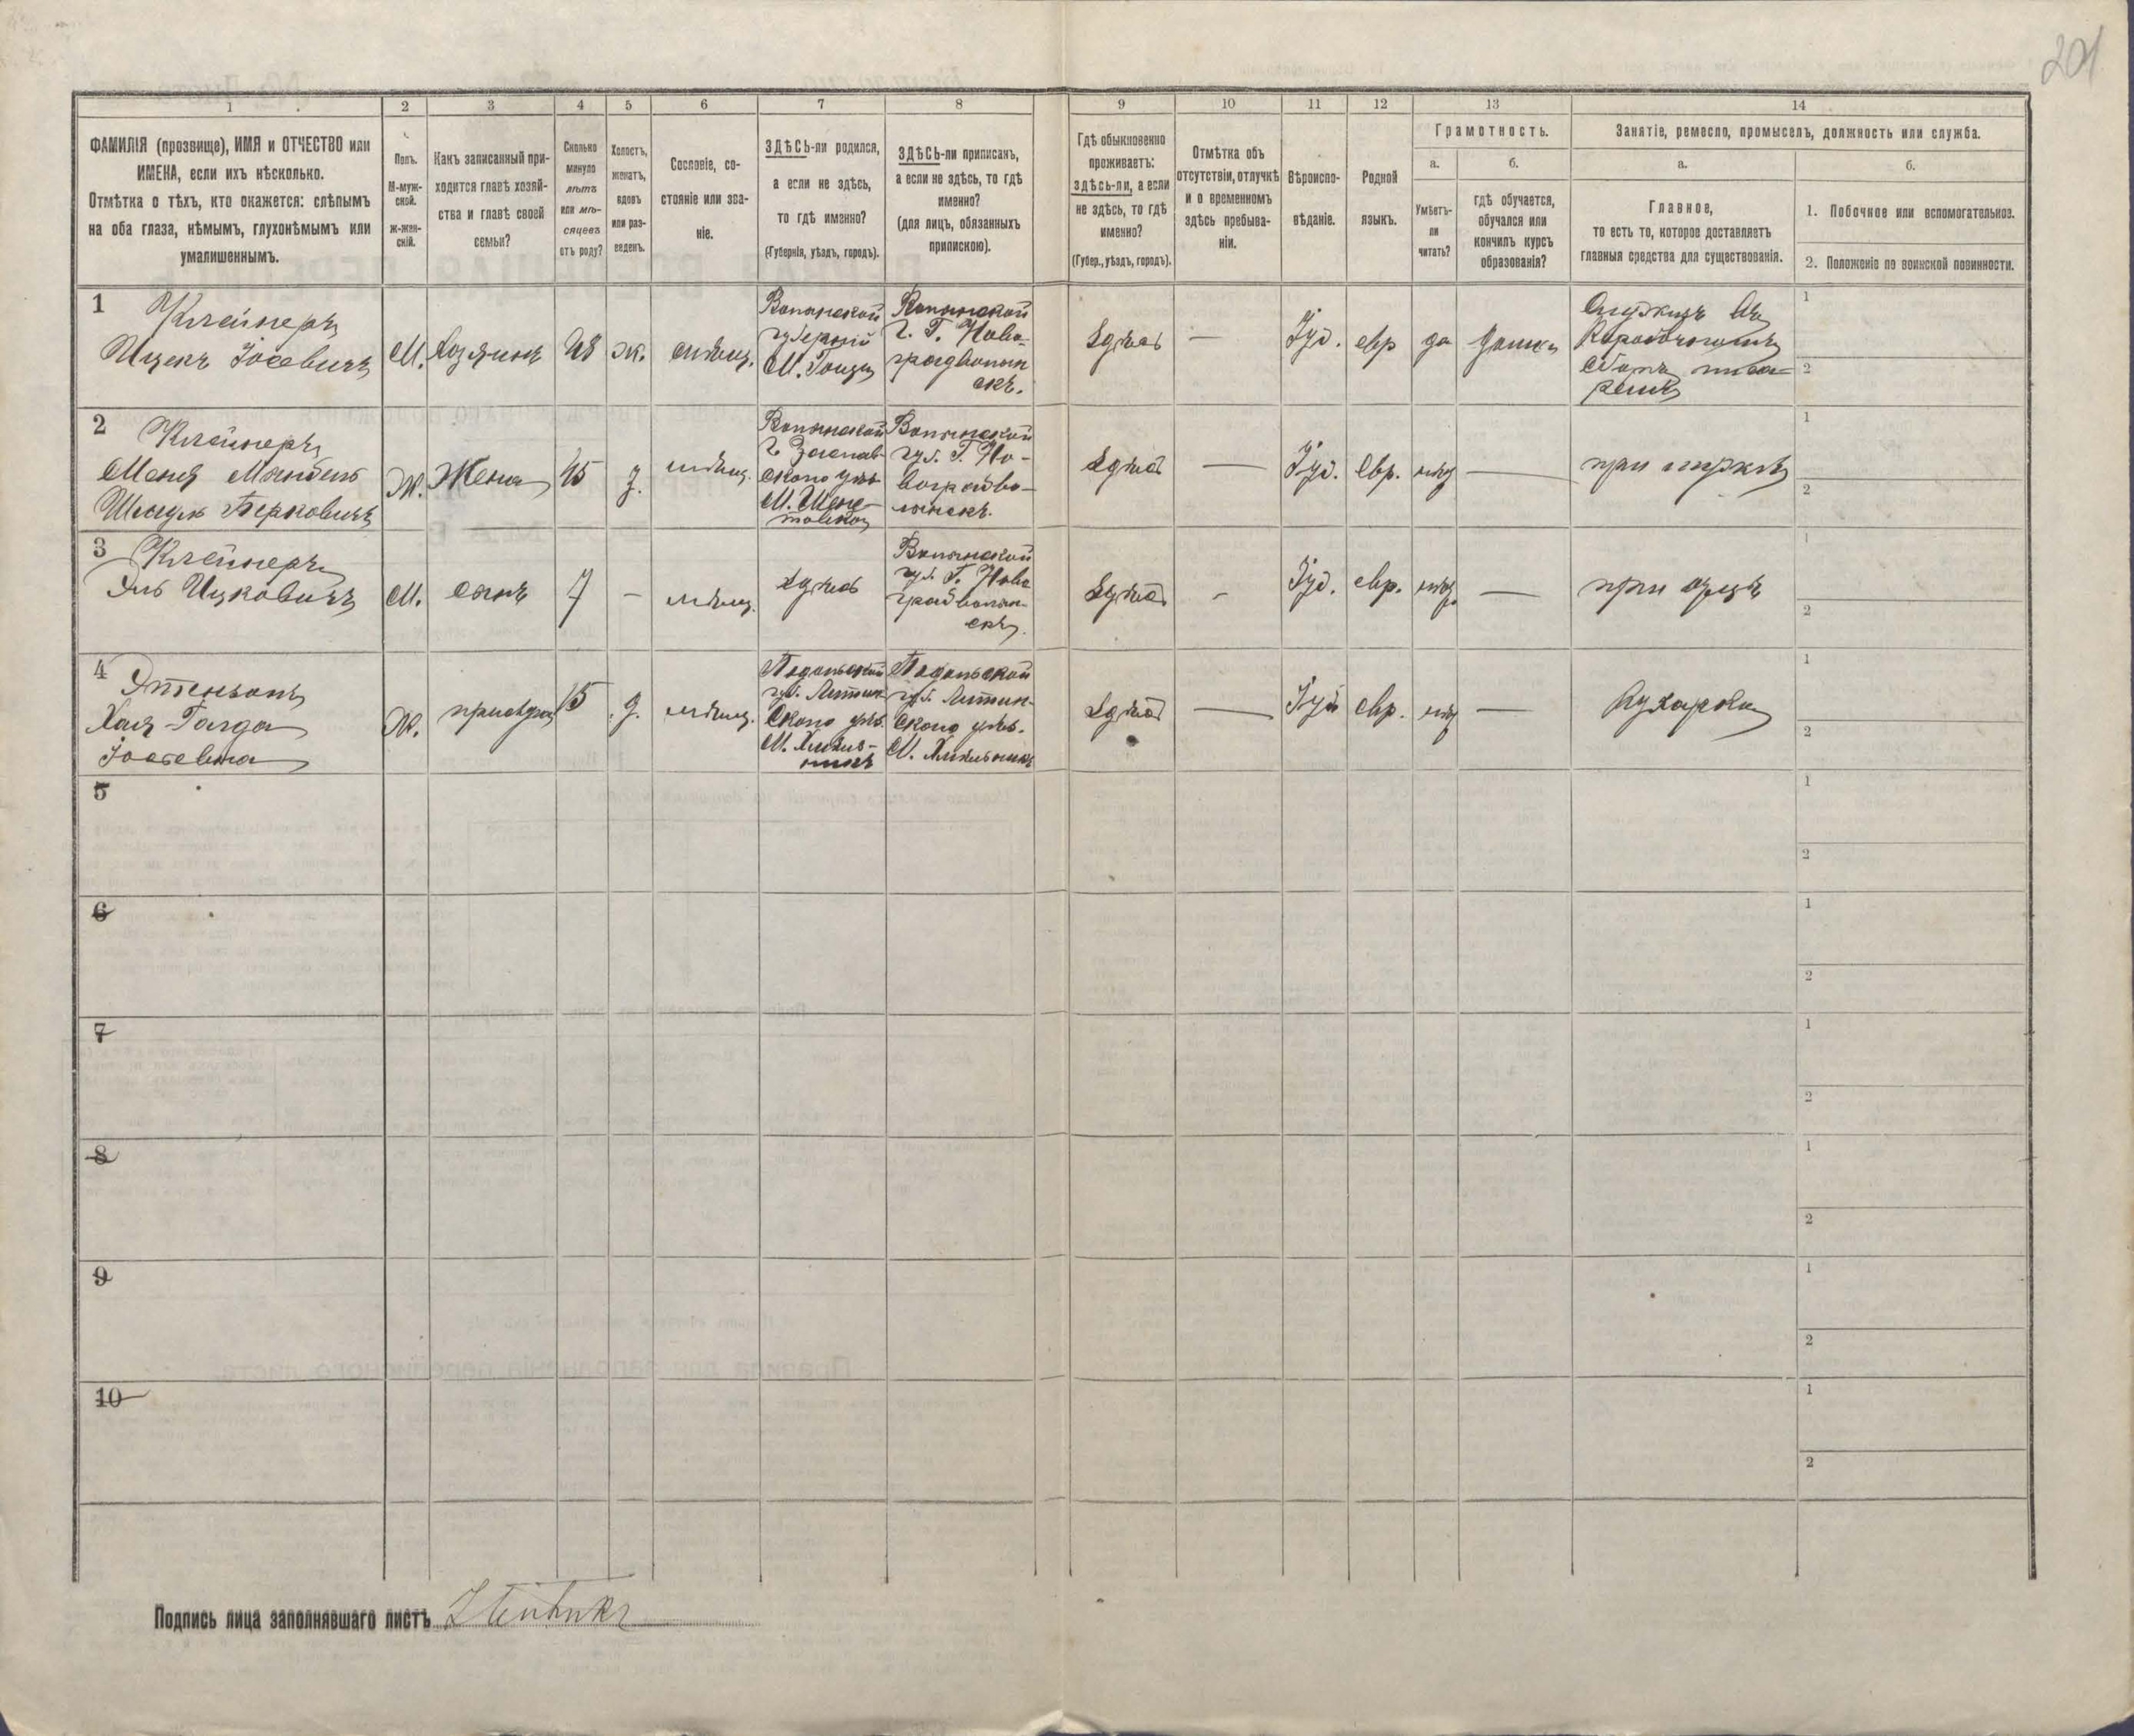 201
1 2 3 4 5 6 7 8 9 10 11 12 13 14
ФАМИЛІЯ (прозвище), ИМЯ и ОТЧЕСТВО или
ИМЕНА, если ихъ нѣсколько.
Отмѣтка о тѣхъ, кто окажется: слѣпымъ
на оба глаза, нѣмымъ, глухонѣмымъ или
умалишеннымъ.
Полъ.
М-муж-
ской.
Ж-жен-
скій.
Какъ записанный при-
ходится главѣ хозяй-
ства и главѣ своей
семьи?
Сколько
минуло
лѣтъ
или мѣ-
сяцевъ
отъ роду?
Холостъ,
женатъ,
вдовъ
или раз-
веденъ.
Сословіе, со-
стояніе или зва-
ніе.
ЗДѢСЬ-ли родился,
а если не здѣсь,
то гдѣ именно?
(Губернія, уѣздъ, городъ).
ЗДѢСЬ-ли приписанъ,
а если не здѣсь, то гдѣ
именно?
(для лицъ, обязанныхъ
припискою).
Гдѣ обыкновенно
проживаетъ:
здѣсь-ли, а если
не здѣсь, то гдѣ
именно?
(Губер., уѣздъ, городъ).
Отмѣтка объ
отсутствіи, отлучкѣ
и о временномъ
здѣсь пребыва-
ніи.
Вѣроиспо-
вѣданіе.
Родной
языкъ.
Грамотность.
а.
Умѣетъ-
ли
читать?
б.
гдѣ обучается,
обучался или
кончилъ курсъ
образованія?
Занятіе, ремесло, промыселъ, должность или служба.
а.
Главное,
то есть то, которое доставляетъ
главныя средства для существованія.
б.
1. Побочное или вспомогательное.
2. Положеніе по воинской повинности.
1
Клейнеръ
Ицекъ Іосевичъ
М.
Хозяинъ
48
ж.
мѣщ.
Волынской
губерніи
М.
Волынской
г. Г. Ново-
градволын
скъ.
Здѣсь
—
Іуд.
евр
да
дома
1
2
2
Клейнеръ
Берковичъ
Ж.
Жена
45
з.
мѣщ.
Волынской
г. Заслав
ского уѣз
М. Шепе-
товка
Волынской
губ. Г. Но-
воградво-
лынскъ.
Здѣсь
—
Іуд.
Евр.
нѣт
—
при мужѣ
1
2
3
Клейнеръ
Ицковичъ
М.
сынъ
7
—
мѣщ.
здѣсь
Волынской
губ. Г. Ново
градволын-
скъ.
Здѣсь
-
Іуд.
евр.
нѣт.
—
при отцѣ
1
2
4
Хая-Голда
Іосевна
Ж.
прислуга
15
д.
мѣщ.
Подольской
губ. Летин
ского уѣз.
М. Хмѣль-
никъ
Подольской
губ. Летин-
ского уѣз.
М. Хмѣльникъ
Здѣсь
—
Іуд
евр.
нѣт
—
Кухарка
1
2
5
1
2
6
1
2
7
1
2
8
1
2
9
1
2
10
1
2
Подпись лица заполнявшаго листъ